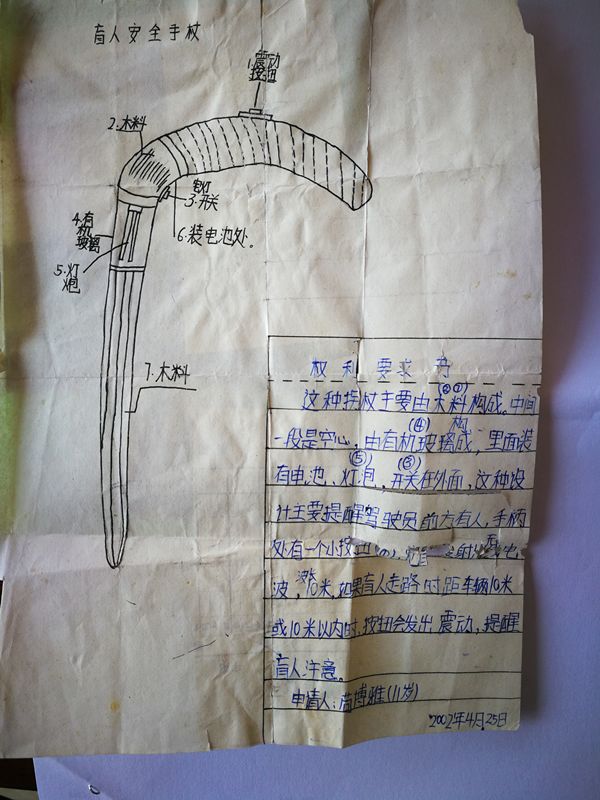 盲人安全手杖
1.震动
按钮
2.木料
3.开关
4.有
机
玻璃
6.装电池处。
5.灯
炮
7.木料
权利要求书
②⑦
这种拐杖主要由木料构成。中间
④ 构
一段是空心,由有机玻璃成,里面装
⑤ ③
有电池、灯泡,开关在外面,这种设
计主要提醒驾驶员前方有人,手柄
处有一个小按
波,10米,如果盲人走路时距车辆10米
或10米以内时,按钮会发出震动,提醒
盲人注意。
申请人:博雅(11岁)
2002年4月25日